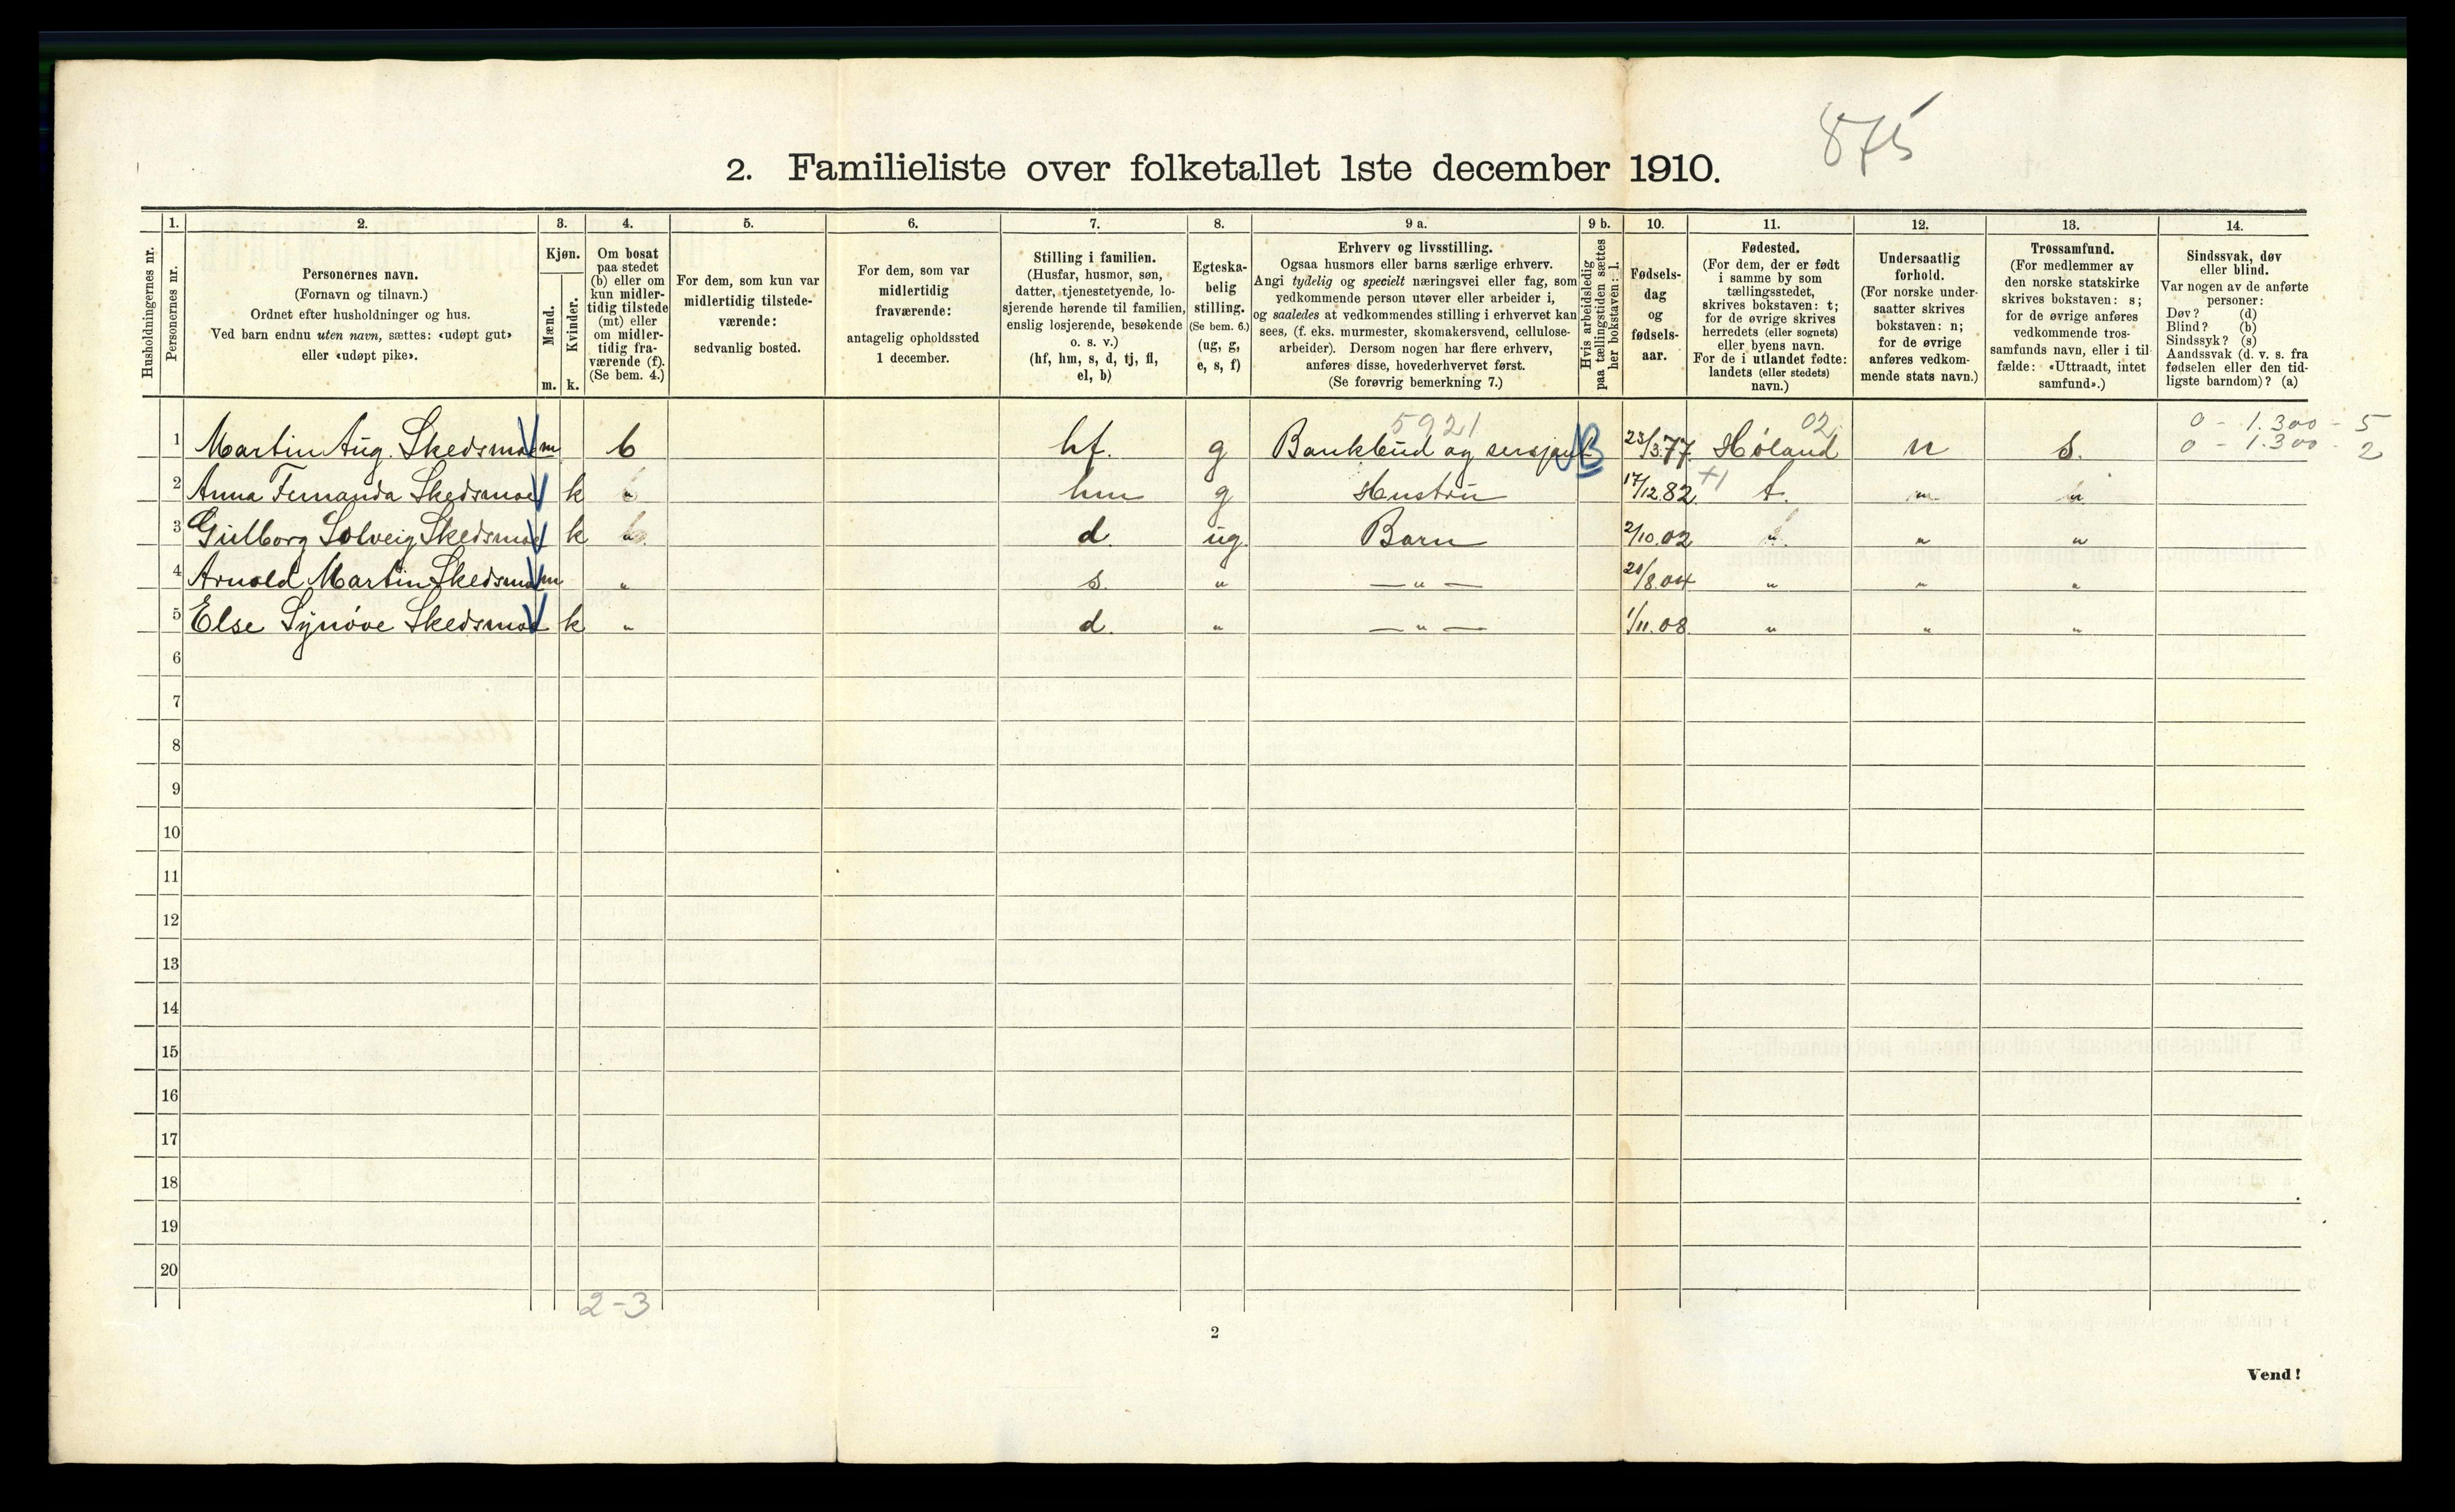 875
2. Familieliste over folketallet 1ste december 1910.
Husholdningernes nr.
1. Personernes nr.
2. Personernes navn.
(Fornavn og tilnavn.)
Ordnet efter husholdninger og hus.
Ved barn endnu uten navn, sættes: «udøpt gut»
eller «udøpt pike».
3. Kjøn.
Mænd. m.
Kvinder. k.
4. Om bosat
paa stedet
(b) eller om
kun midler-
tidig tilstede
(mt) eller
om midler-
tidig fra-
værende (f).
(Se bem. 4.)
5. For dem, som kun var
midlertidig tilstede-
værende:
sedvanlig bosted.
6. For dem, som var
midlertidig
fraværende:
antagelig opholdssted
1 december.
7. Stilling i familien.
(Husfar, husmor, søn,
datter, tjenestetyende, lo-
sjerende hørende til familien,
enslig losjerende, besøkende
o. s. v.)
(hf, hm, s, d, tj, fl,
el, b)
8. Egteska-
belig
stilling.
(Se bem. 6.)
(ug, g,
e, s, f)
9 a. Erhverv og livsstilling.
Ogsaa husmors eller barns særlige erhverv.
Angi tydelig og specielt næringsvei eller fag, som
vedkommende person utøver eller arbeider i,
og saaledes at vedkommendes stilling i erhvervet kan
sees, (f. eks. murmester, skomakersvend, cellulose-
arbeider). Dersom nogen har flere erhverv,
anføres disse, hovederhvervet først.
(Se forøvrig bemerkning 7.)
9 b. Hvis arbeidsledig
paa tællingstiden sættes
her bokstaven: l.
10. Fødsels-
dag
og
fødsels-
aar.
11. Fødested.
(For dem, der er født
i samme by som
tællingsstedet,
skrives bokstaven: t;
for de øvrige skrives
herredets (eller sognets)
eller byens navn.
For de i utlandet fødte:
landets (eller stedets)
navn.)
12. Undersaatlig
forhold.
(For norske under-
saatter skrives
bokstaven: n;
for de øvrige
anføres vedkom-
mende stats navn.)
13. Trossamfund.
(For medlemmer av
den norske statskirke
skrives bokstaven: s;
for de øvrige anføres
vedkommende tros-
samfunds navn, eller i til-
fælde: «Uttraadt, intet
samfund».)
14. Sindssvak, døv
eller blind.
Var nogen av de anførte
personer:
Døv? (d)
Blind? (b)
Sindssyk? (s)
Aandssvak (d. v. s. fra
fødselen eller den tid-
ligste barndom)? (a)
5921 02 0 - 1.300 - 5
1 Martin Aug. Skedsmoe m b hf. g Bankbud og sersjant B 23/3.77. Høland n s. 0 - 1.300 - 2
2 Anna Fernanda Skedsmoe k " hm g Hustru 17/12.82. t. " "
3 Gulborg Solveig Skedsmoe k " d. ug. Barn 2/10.02 " " "
4 Arnold Martin Skedsmoe m " s. " — " — 20/8.04 " " "
5 Else Synøve Skedsmoe k " d. " — " — 1/11.08 " " "
6
7
8
9
10
11
12
13
14
15
16
17
18
19
20
2-3
2
Vend!